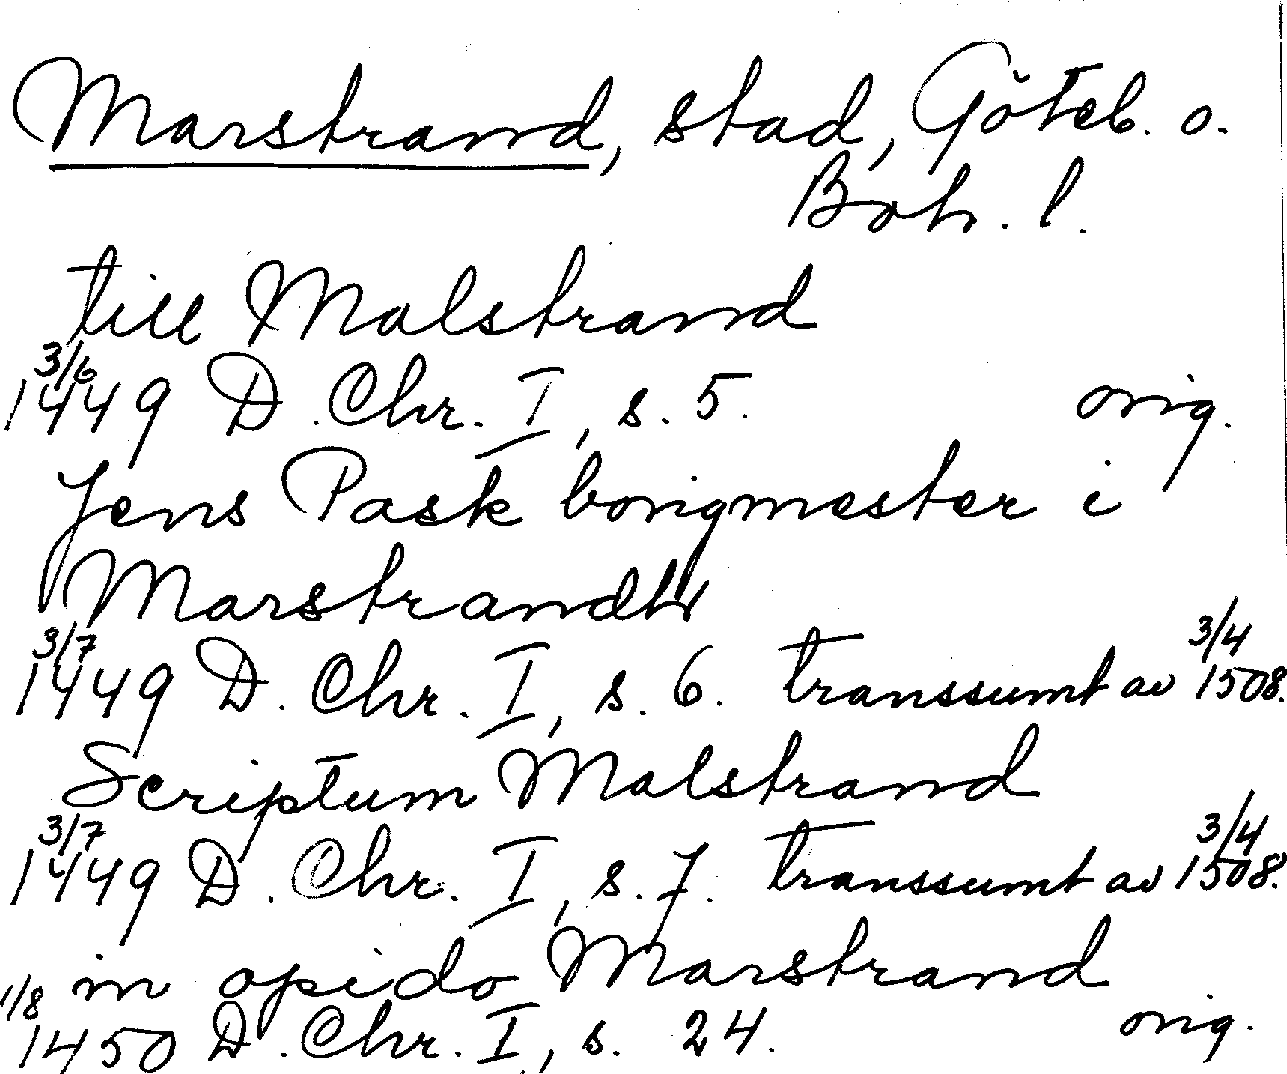 Marstrand, stad, Göteb. o.
Boh. l.
till Malstrand
3/6 1449 D. Chr. I, s. 5. orig.
Jens Pask borigmester i
Marstrandh
3/7 1449 D. Chr. I, s. 6. transsumt av 3/4 1508.
Scriptum Malstrand
3/7 1449 D. Chr. I, s. 7. transsumt av 3/4 1508.
in opido Marstrand
1/8 1450 D. Chr. I, s. 24. orig.